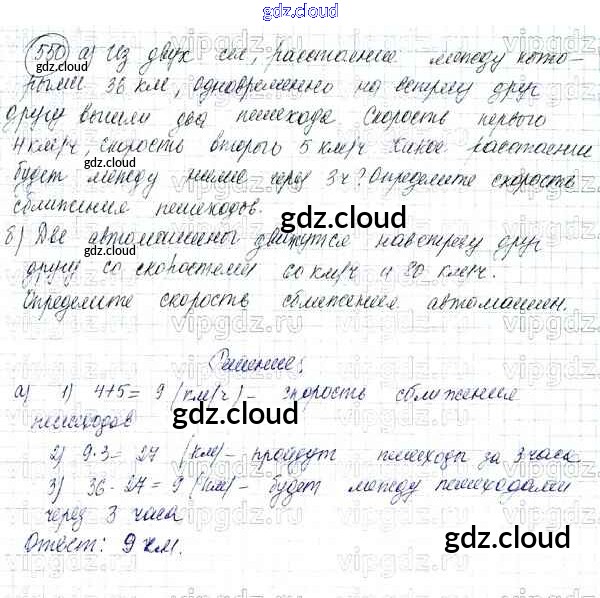 gdz.cloud
550 а) Из двух сел, расстояние между кото-
рыми 36 км, одновременно на встречу друг
другу вышли два пешехода. Скорость первого
4 км/ч, скорость второго 5 км/ч. Какое расстояние
будет между ними через 3 ч? Определите скорость
сближения пешеходов.
б) Две автомашины движутся навстречу друг
другу со скоростями 60 км/ч и 80 км/ч.
Определите скорость сближения автомашин.
Решение:
а) 1) 4+5= 9 (км/ч) - скорость сближения
пешеходов
2) 9·3= 27 (км) - пройдут пешеходы за 3 часа
3) 36-27=9 (км) - будет между пешеходами
через 3 часа
Ответ: 9 км.
gdz.cloud
gdz.cloud
gdz.cloud
gdz.cloud
gdz.cloud
gdz.cloud
gdz.cloud
gdz.cloud